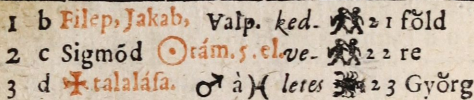 1 b Filep, Jakab, Valp. ked- 21 főld
2 c Sigmōd ☉rám. 5. el. ve- 22 re
3 d ✠ talaláſa. ♂ à ♓ letes 23 Gyŏrg